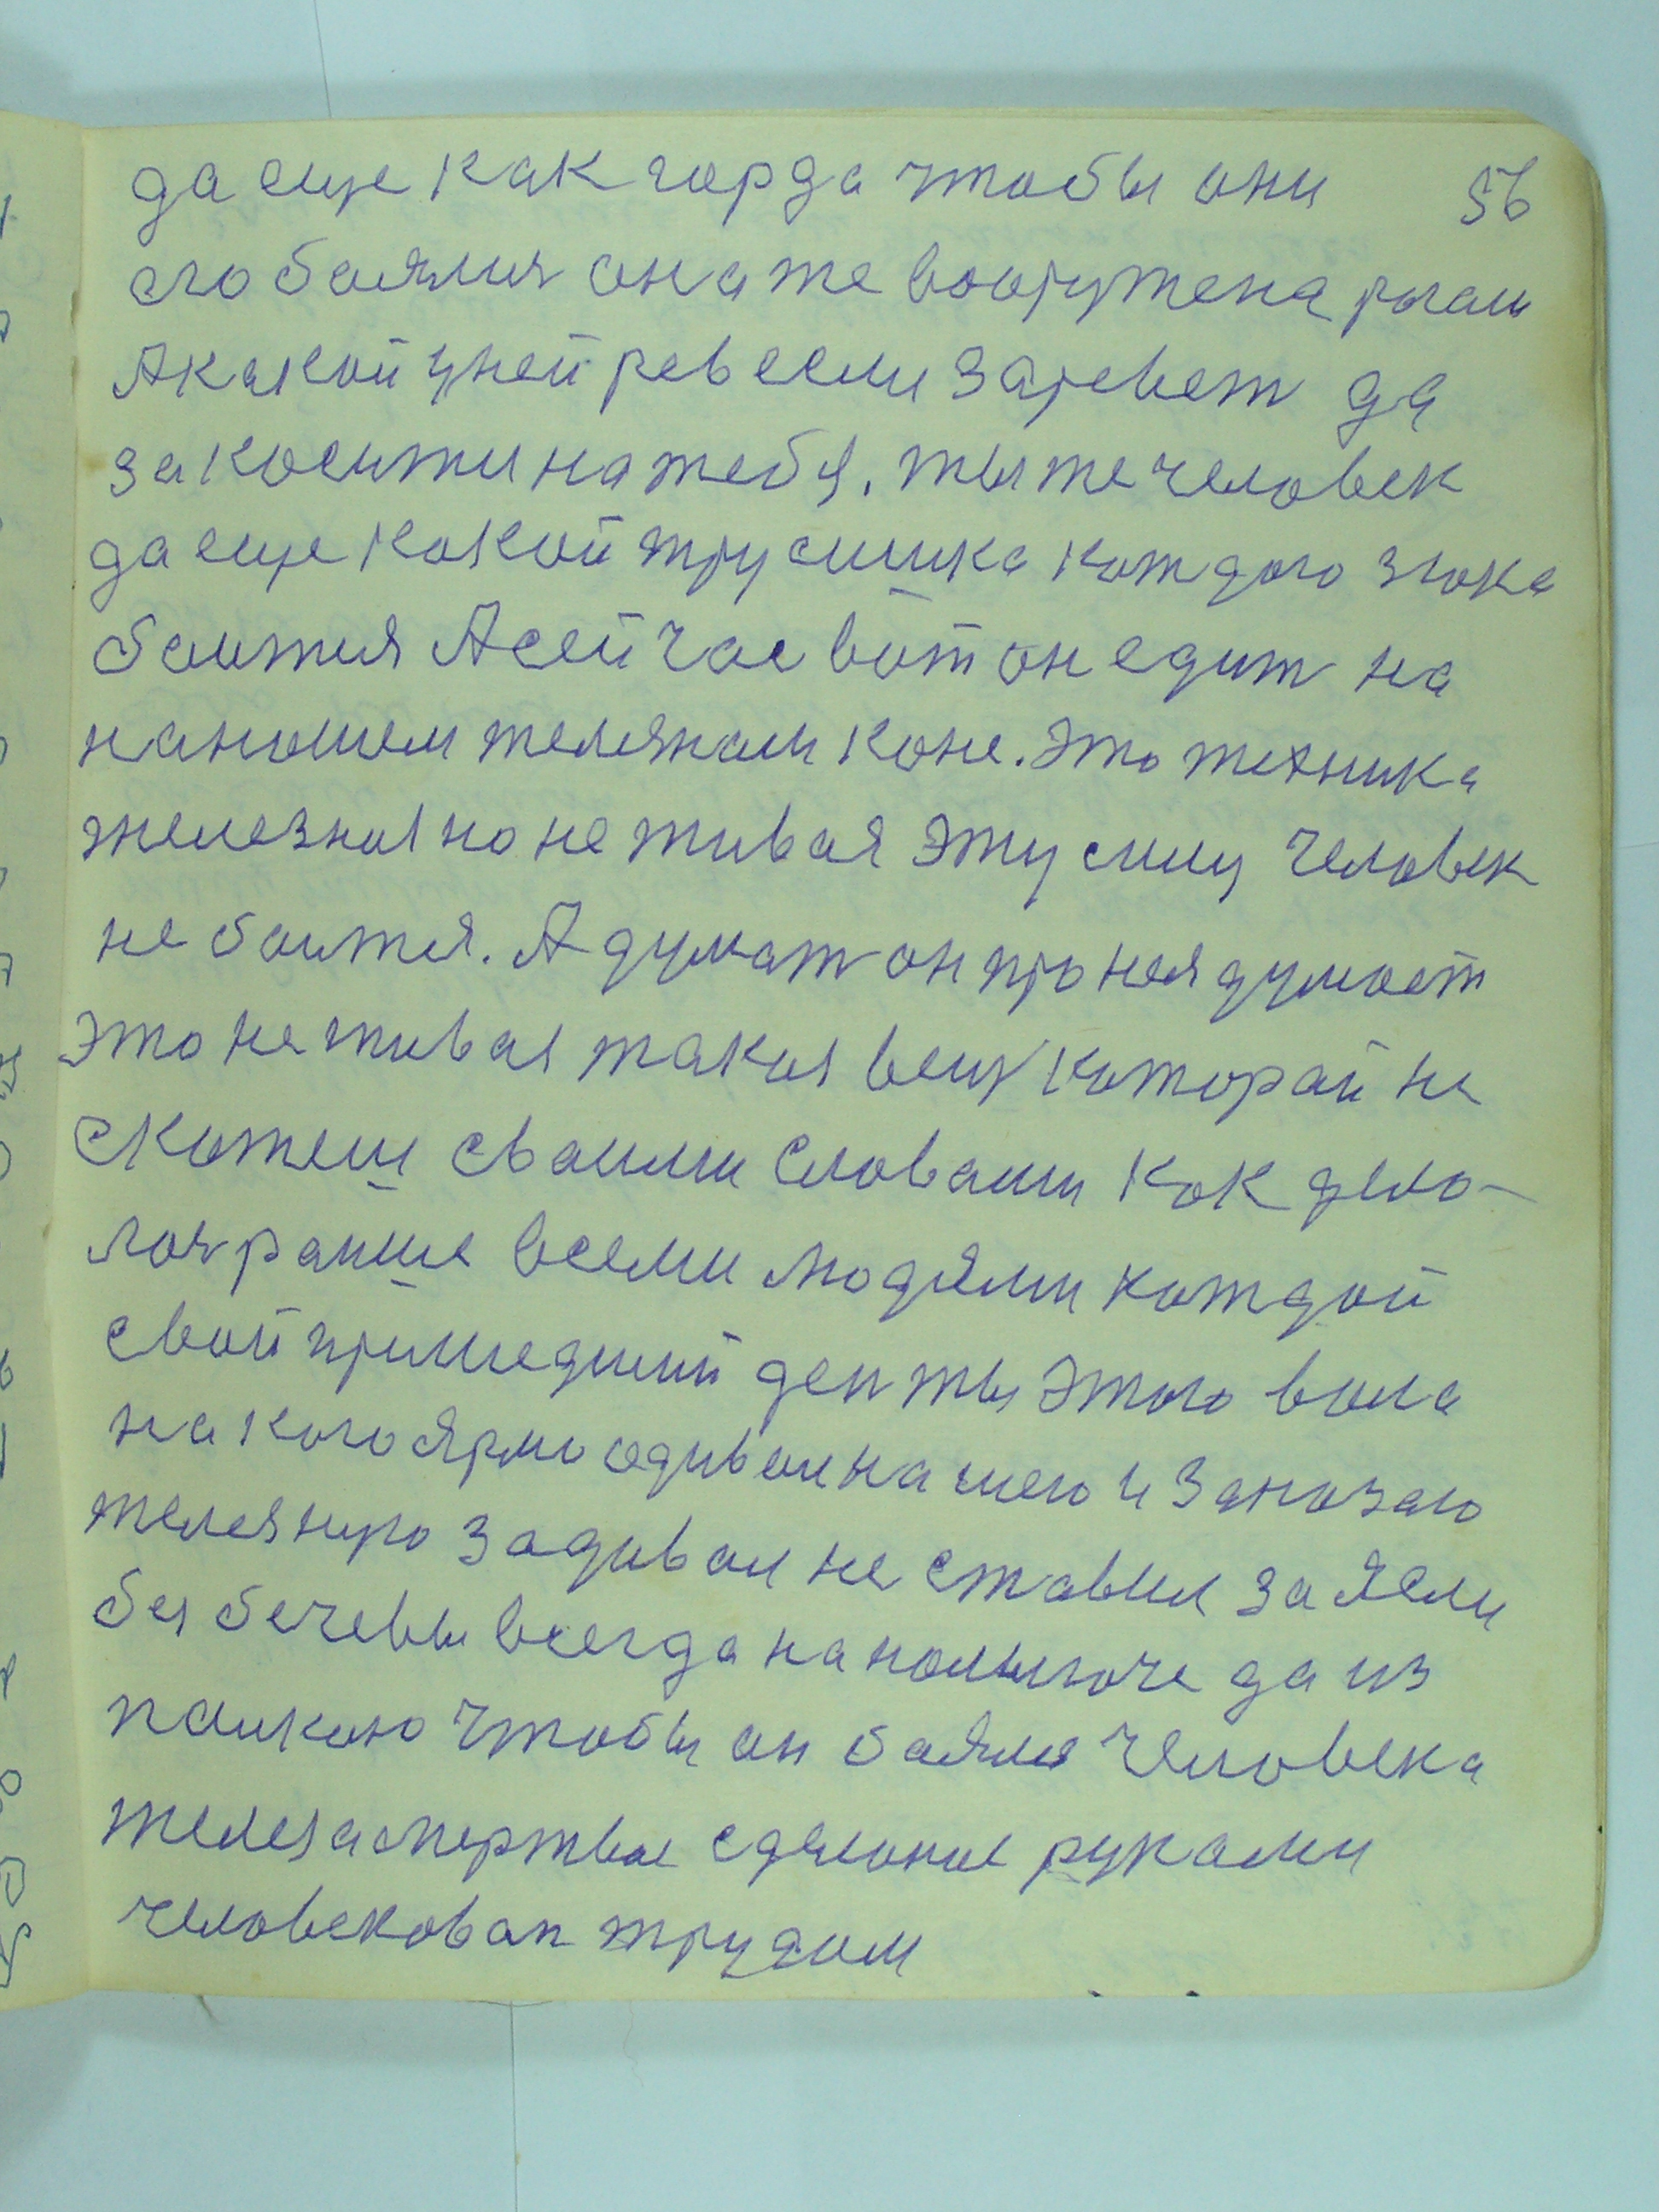 да еще как горда чтобы они 56
его боялися она же вооружена рогам
А какой у ней рев если заревет да
за косити на тебя. ты же человек
да еще какой трусишка каждого звока
боится А сейчас вот он едит на
нанашем железнам коне. это техника
железная но не живая эту силу человек
не боится. А думат он про нея думает
это не живая такая вещ каторай не
скажеш сваими словами как дела-
лоя раньше всеми людями каждой
свой пришедший ден ты этого вола
на кого ярмо одивал на шею и занозаю
железную задивал не ставил за ясли
без бечевы всегда на налыгаче да из
палкаю чтобы он боялся человека
железа мертвае сделанае руками
человековам трудом